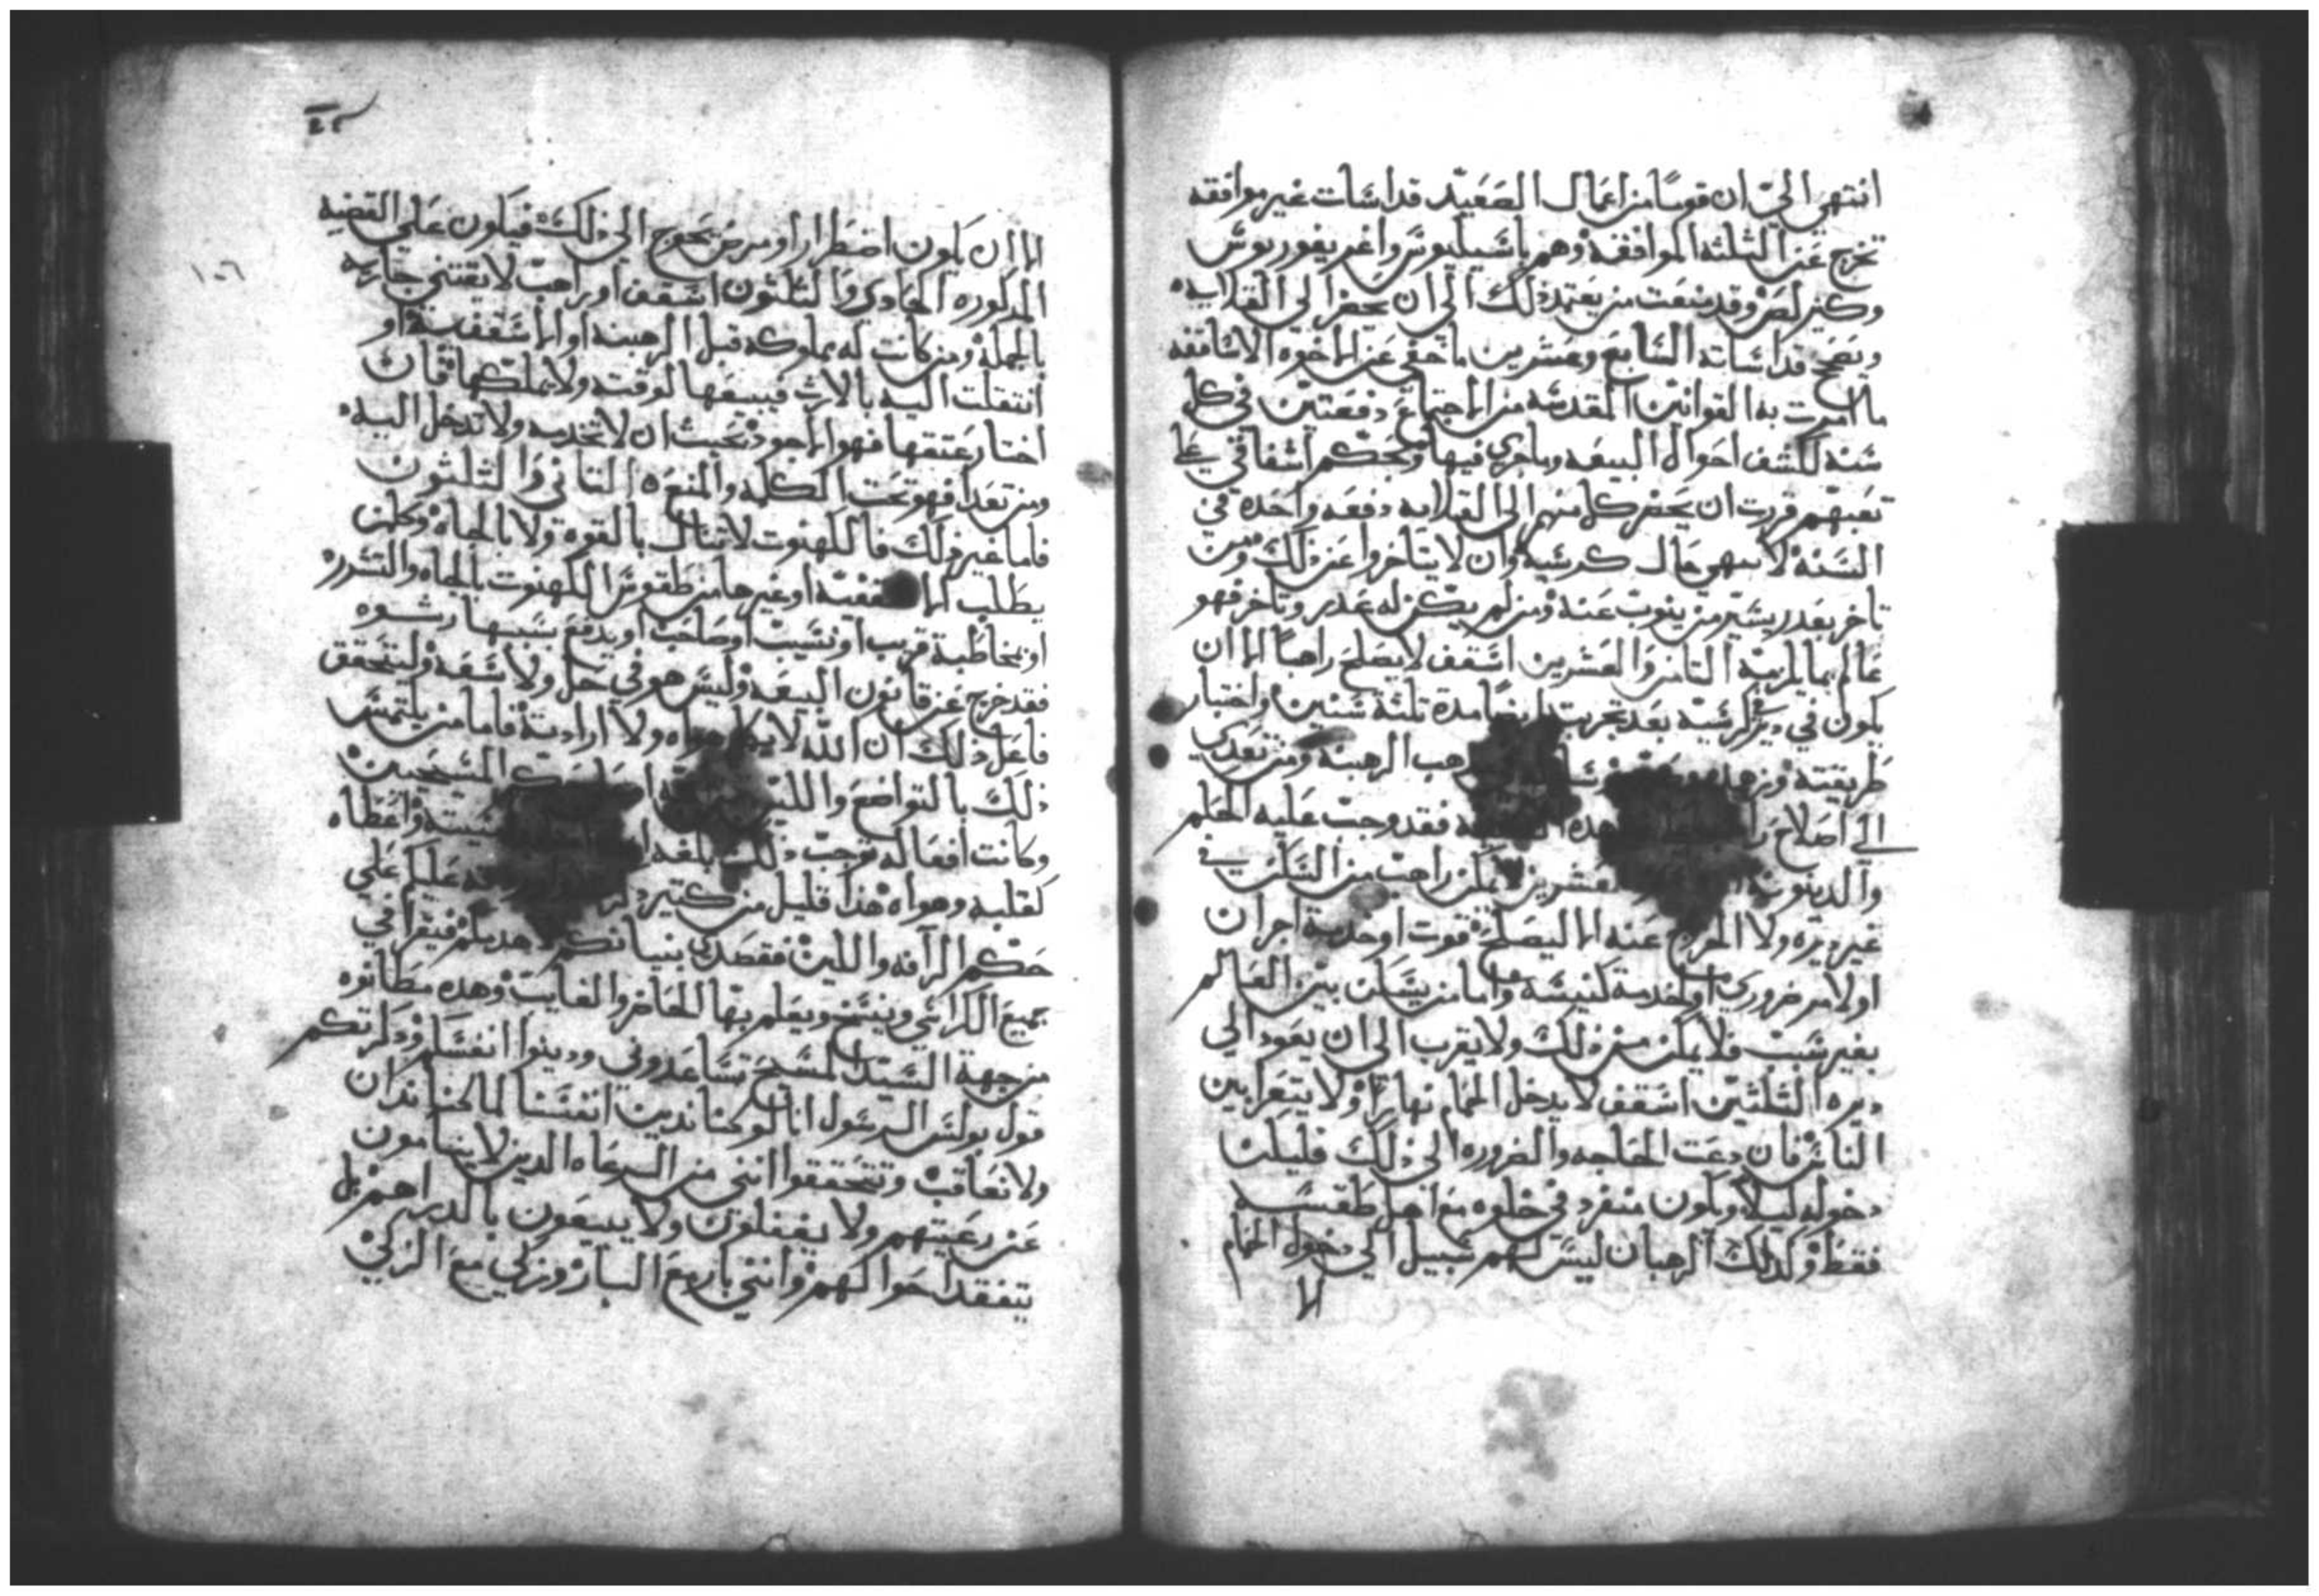 انتهي الي ان قوما من اعمال الصعيد قداسات غير موافقه
تخرج عن الثلثه الموافقه وهم باسيليوس واغريغوريوس
وكيرلص وقد منعت من يعتمد ذلك الي ان يحضر الي القلايه
ويصحح قداساته السابع وعشرين ما خفي عن الاخوه الاساقفه
ما امرت به القوانين المقدسه من الاجتماع دفعتين في كل
سنه لكشف احوال البيعه وما جري فيها وبحكم اشفاقي علي
تعبهم قررت ان يحضر كل منهم الي القلايه دفعه واحده في
السنه لانهي حال كرسيه وان لا يتاخروا عن ذلك ومن
تاخر بعدر يسير من ينوب عنه ومن لم يكن له عدر وتاخر فهو
عالم بما يلزمه الثامن والعشرين اسقف لا يصلح راهبا الا ان
يكون في دير كرسيه بعد تجربته ايضا مدة ثلثة سنين واختبار
طريقته وزهده هب الرهبنه ومن تعدي
الي اصلاح هده فقد وجب عليه الحلم
والدينونه عشرين لا يمكن راهب من السكن في
غير ديره ولا الخروج عنه الا ليصلح قوت او خدمة اجران
اولامر ضروري او لخدمة كنيسه واما من يسكن بين العالم
بغير سبب فلا يمكن من ذلك ولا يقرب الي ان يعود الي
ديره الثلثين اسقف لا يدخل الحمام نهارا ولا يتعرا بين
الناس فان دعت الحاجه والضروره الي ذلك فليكن
دخوله ليلا ويكون منفرد في خلوه مع اهل طقسه
فقط وكدلك الرهبان ليس لهم سبيل الي دخول الحمام
الا
١٠٦
الا ان يكون اضطرارا ومرض يحوج الي ذلك فيكون علي القضيه
المدكوره الحادي والثلثون اسقف او راهب لا يقتني جاريه
بالجمله ومن كانت له مملوكه قبل الرهبنه او الاسقفيه او
انتقلت اليه بالارث فيبيعها لوقته ولا يملكها فان
اختار عتقها فهو الاجود بحيث ان لا تخدمه ولا تدخل اليه
ومن تعدا فهو تحت الكلمه والمنع الثاني والثلثون
فاما غير ذلك فالكهنوت لا تنال بالقوه ولا بالجاه وكلمن
يطلب الا قفيه او غيرها من طقوس الكهنوت بالجاه والتسرره
او بمخاطبة قريب او نسيب او صاحب او يدفع بسببها رشوه
فقد خرج عن قانون البيعه وليس هو في حل ولا سعه وليتحقق
فاعل ذلك ان الله لا هواه ولا ارادته فاما من يلتمس
ذلك بالتواضع واللين المسيحيين
وكانت افعاله توجب ذلك بلغه نيته واعطاه
كقلبه وهواه هذا قليل من كثير عليكم علي
حكم الرآفه واللين فقصدي بنيانكم لا هدمكم فيقرا في
جميع الكراسي وينسخ ويعلم بها الحاضر والغايب وهده مطانوه
من جهة السيد المسيح تساعدوني ودينوا انفسكم وذكرتكم
قول بولس الرسول انا لو كنا ندين انفسنا لما كنا ندان
ولا نعاقب وتتحققوا انني من الرعاه الدين لا ينامون
عن رعيتهم ولا يغفلون ولا يبيعون بالدراهم بل
يتفقد احوالهم وانني بار مع البار وزكي مع الزكي